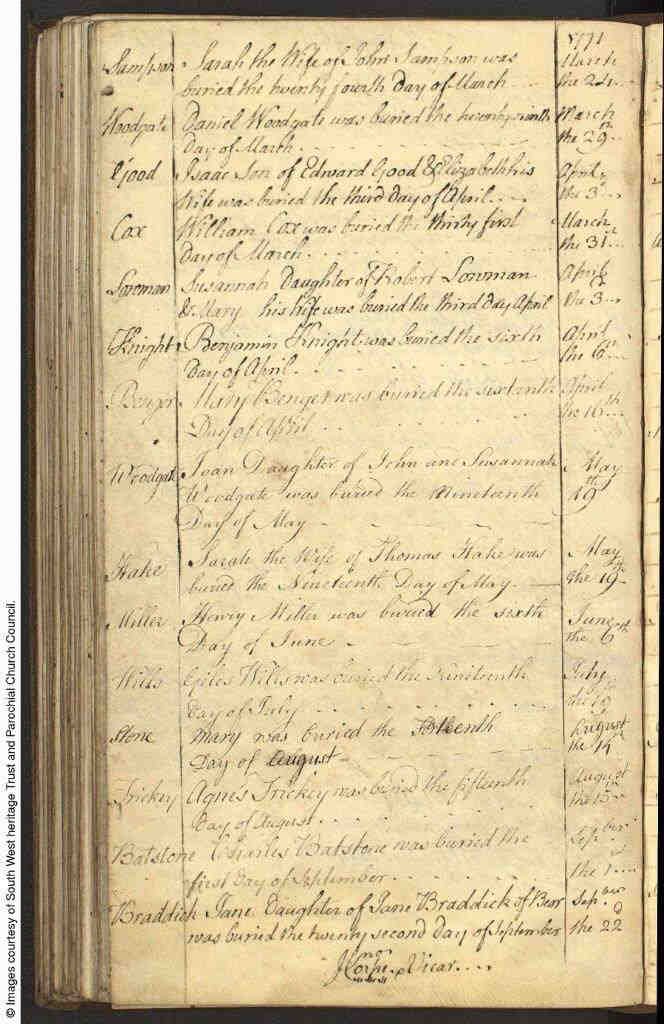 1771
Sampson Sarah the Wife of John Sampson was March
buried the twenty fourth Day of March the 24
Woodgate Daniel Woodgate was buried the twenty ninth March
Day of March the 29th
Good Isaac Son of Edward Good & Elizabeth his April
Wife was buried the third Day of April the 3
Cox William Cox was buried the thirty first March
Day of March the 31
Lowman Susannah Daughter of Robert Lowman April
& Mary his Wife was buried the third Day April the 3
Knight Benjamin Knight was buried the sixth April
Day of April the 6
Mary Benger was buried the sixteenth April
Day of April the 16th
Woodgate Joan Daughter of John and Susannah May
Woodgate was buried the Nineteenth 19th
Day of May
Hake Sarah the Wife of Thomas Hake was May
buried the Nineteenth Day of May the 19
Miller Henry Miller was buried the sixth June
Day of June the 6th
Wills Giles Wills was buried the Nineteenth July
Day of July the 19
Stone Mary was buried the August
Day of August the 14
Trickey Agnes Trickey was buried the fifteenth August
Day of August the 15
Batstone Charles Batstone was buried the Sepber
first Day of September the 1
Braddick Jane Daughter of Jane Braddick of Bear Sepber
was buried the twenty second Day of September the 22d
Vicar
© Images courtesy of South West heritage Trust and Parochial Church Council.